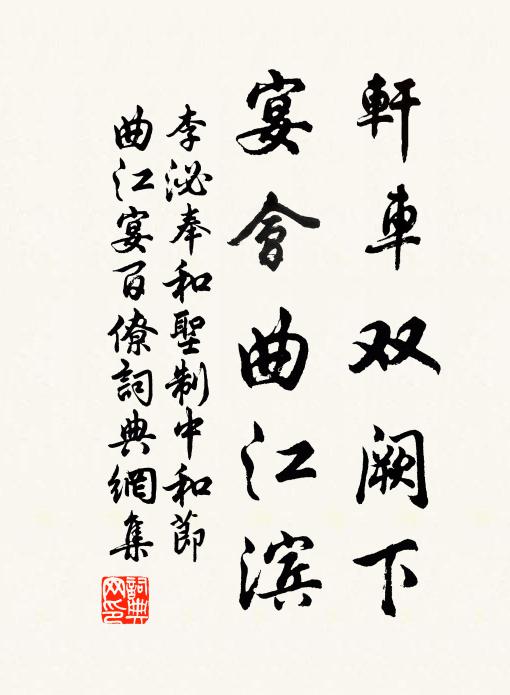 軒車双阙下
宴會曲江滨
李泌奉和聖制中和節
曲江宴百僚詞典網集
詞典
网印